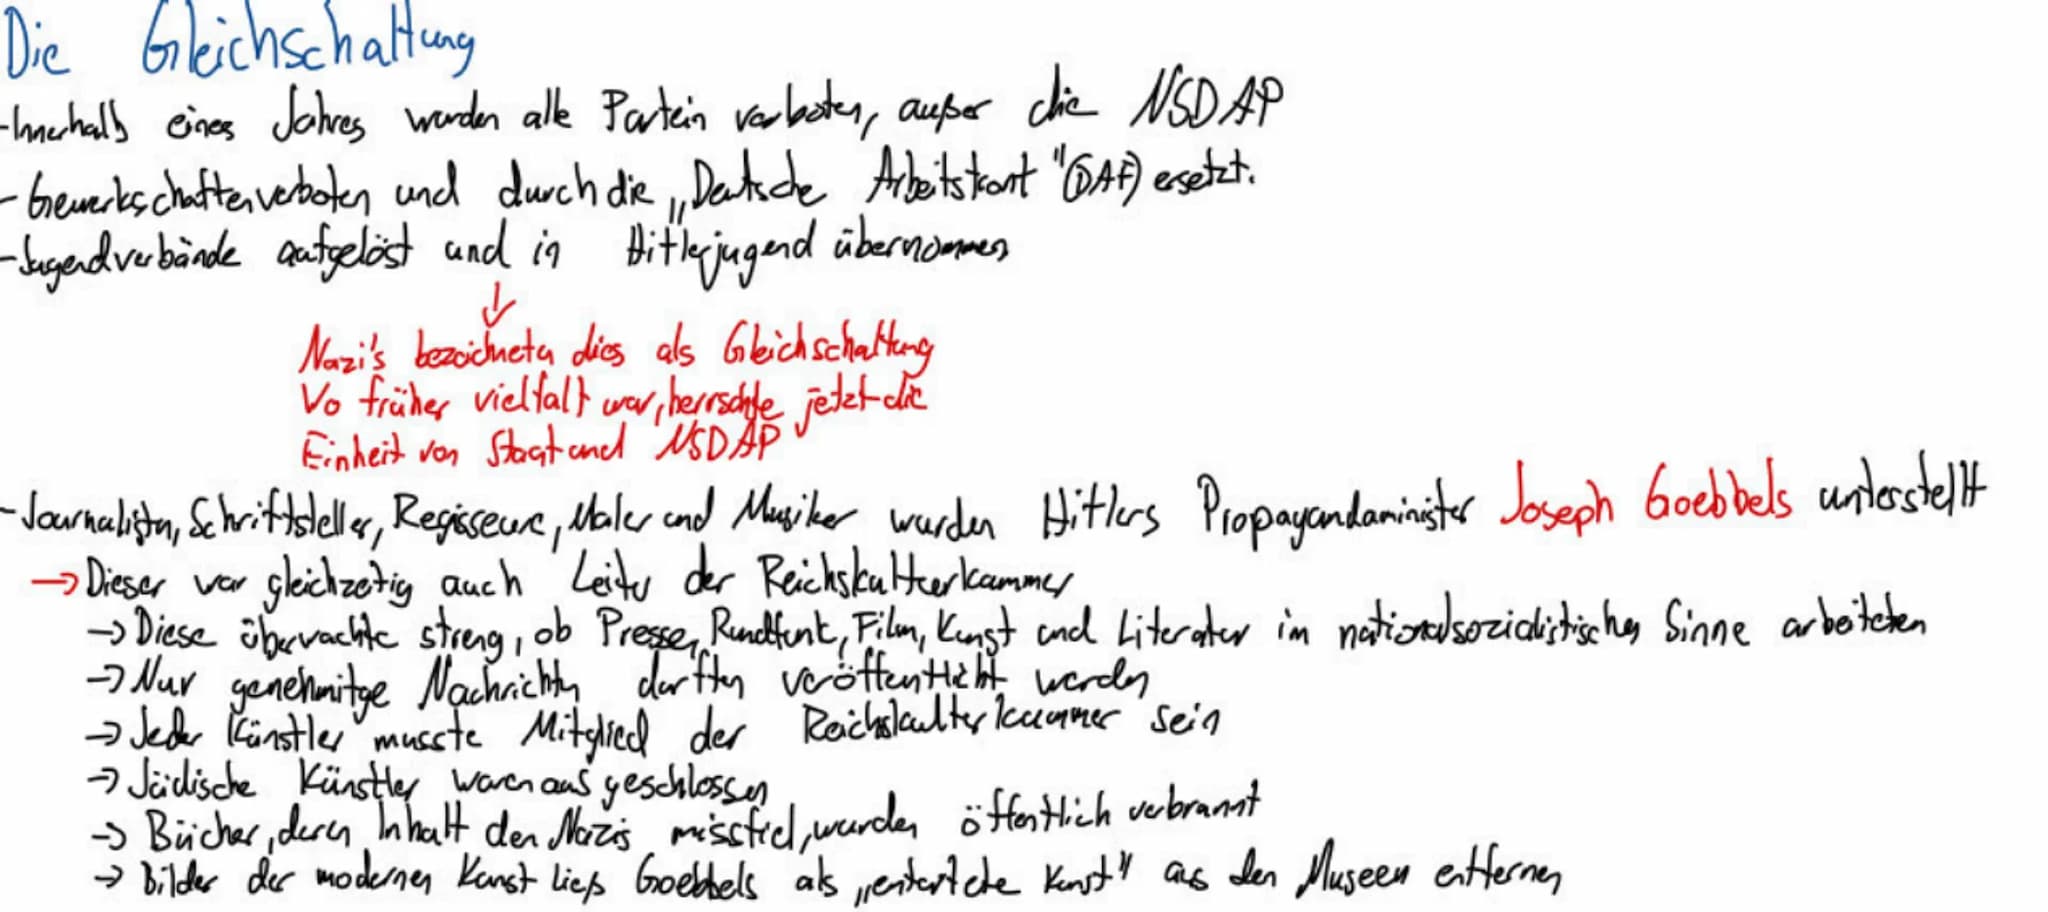 Die Gleichschaltung
-Innerhalb eines Jahres wurden alle Partein verboten, außer die NSDAP
-Gewerkschaften verboten und durch die „Deutsche Arbeitsfront" (DAF) ersetzt.
-Jugendverbände aufgelöst und in Hitlerjugend übernommen
↓
Nazi's bezeichneten dies als Gleichschaltung
Wo früher vielfalt war, herrschte jetzt die
Einheit von Staat und NSDAP
-Journalisten, Schriftsteller, Regisseure, Maler und Musiker wurden Hitlers Propagandaminister Joseph Goebbels unterstellt
→ Dieser war gleichzetig auch Leiter der Reichskulturkammer
→ Diese überwachte streng, ob Presse, Rundfunk, Film, Kunst und Literatur im nationalsozialistischen Sinne arbeiteten
→ Nur genehmitge Nachrichten durften veröffentlicht werden
→ Jeder Künstler musste Mitglied der Reichskulturkammer sein
→ Jüdische Künstler waren ausgeschlossen
→ Bücher, deren Inhalt den Nazis missfiel, wurden öffentlich verbrannt
→ Bilder der modernen Kunst ließ Goebbels als „entartete Kunst" aus den Museen entfernen